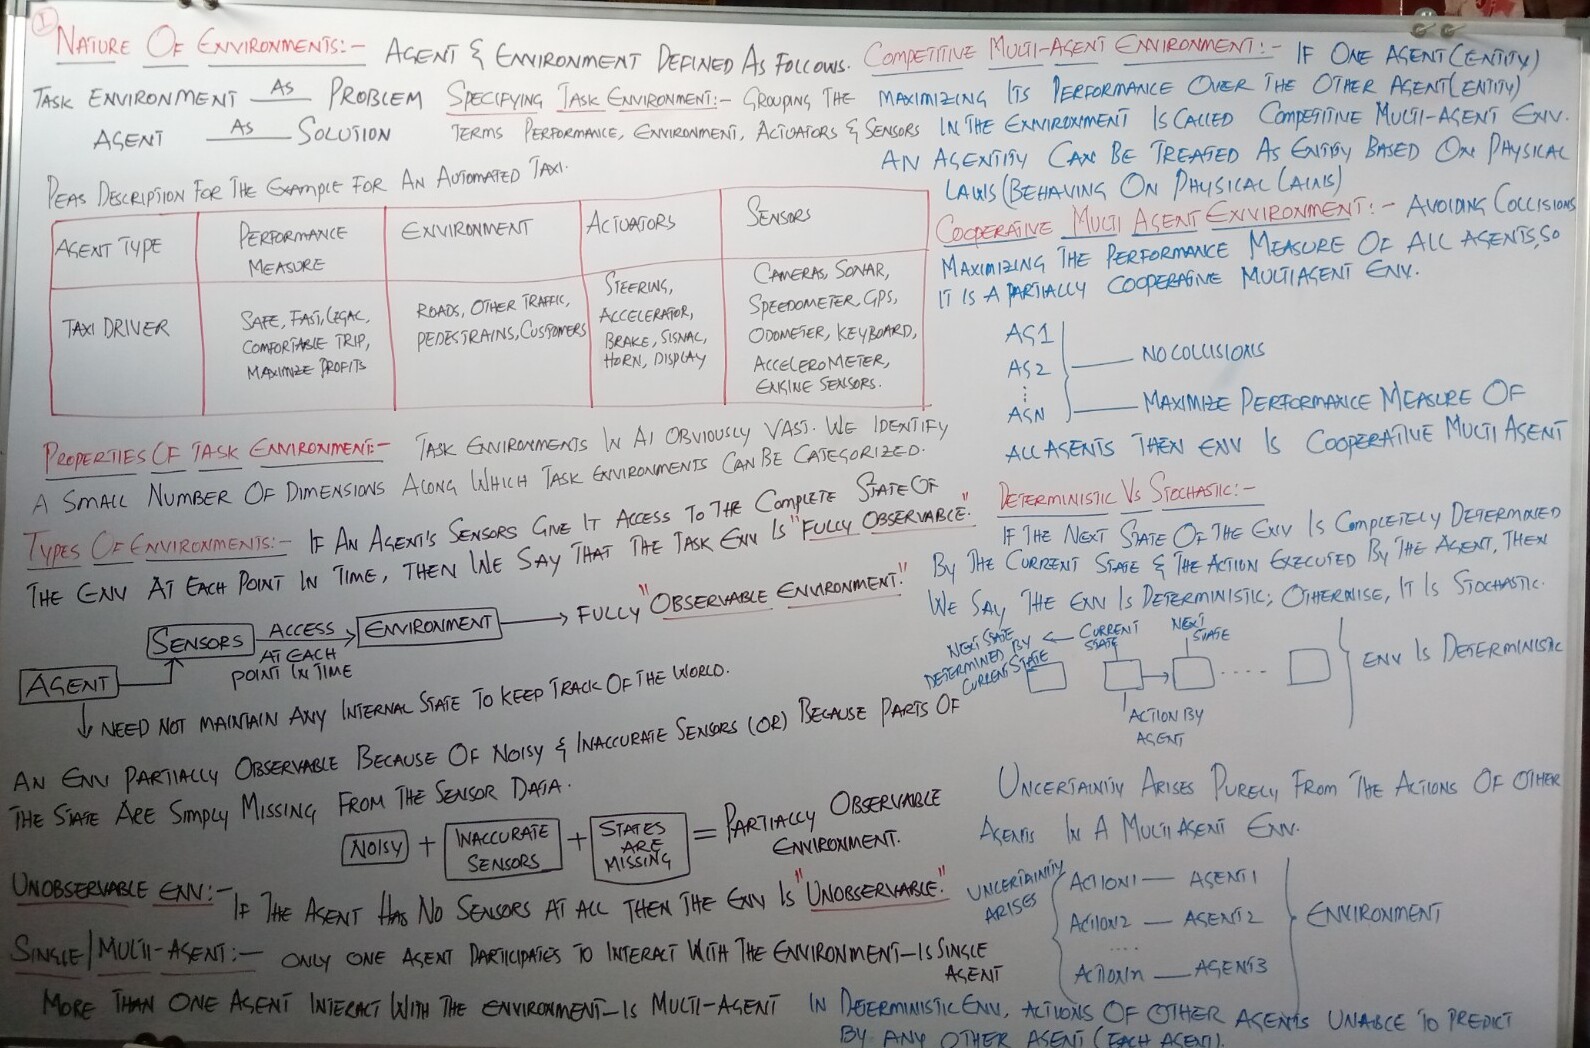 I
NATURE OF ENVIRONMENTS:- AGENT & ENVIRONMENT DEFINED AS FOLLOWS.
TASK ENVIRONMENT AS PROBLEM
AGENT AS SOLUTION
SPECIFYING TASK ENVIRONMENT:- GROUPING THE
TERMS PERFORMANCE, ENVIRONMENT, ACTUATORS & SENSORS
PEAS DESCRIPTION FOR THE EXAMPLE FOR AN AUTOMATED TAXI.
AGENT TYPE
PERFORMANCE
MEASURE
ENVIRONMENT
ACTUATORS
SENSORS
TAXI DRIVER
SAFE, FAST, LEGAL,
COMFORTABLE TRIP,
MAXIMIZE PROFITS
ROADS, OTHER TRAFFIC,
PEDESTRAINS, CUSTOMERS
STEERING,
ACCELERATOR,
BRAKE, SIGNAL,
HORN, DISPLAY
CAMERAS, SONAR,
SPEEDOMETER, GPS,
ODOMETER, KEYBOARD,
ACCELEROMETER,
ENGINE SENSORS.
PROPERTIES OF TASK ENVIRONMENT:- TASK ENVIRONMENTS IN AI OBVIOUSLY VAST. WE IDENTIFY
A SMALL NUMBER OF DIMENSIONS ALONG WHICH TASK ENVIRONMENTS CAN BE CATEGORIZED.
TYPES OF ENVIRONMENTS:- IF AN AGENT'S SENSORS GIVE IT ACCESS TO THE COMPLETE STATE OF
THE ENV AT EACH POINT IN TIME, THEN WE SAY THAT THE TASK ENV IS "FULLY OBSERVABLE."
AGENT
SENSORS
ACCESS
AT EACH
POINT IN TIME
ENVIRONMENT
FULLY "OBSERVABLE ENVIRONMENT."
NEED NOT MAINTAIN ANY INTERNAL STATE TO KEEP TRACK OF THE WORLD.
AN ENV PARTIALLY OBSERVABLE BECAUSE OF NOISY & INACCURATE SENSORS (OR) BECAUSE PARTS OF
THE STATE ARE SIMPLY MISSING FROM THE SENSOR DATA.
NOISY + INACCURATE
SENSORS
+ STATES
ARE
MISSING
= PARTIALLY OBSERVABLE
ENVIRONMENT.
UNOBSERVABLE ENV:- IF THE AGENT HAS NO SENSORS AT ALL THEN THE ENV IS "UNOBSERVABLE."
SINGLE/MULTI-AGENT:- ONLY ONE AGENT PARTICIPATES TO INTERACT WITH THE ENVIRONMENT-IS SINGLE
AGENT
MORE THAN ONE AGENT INTERACT WITH THE ENVIRONMENT-IS MULTI-AGENT
COMPETITIVE MULTI-AGENT ENVIRONMENT:- IF ONE AGENT(ENTITY)
MAXIMIZING ITS PERFORMANCE OVER THE OTHER AGENT(ENTITY)
IN THE ENVIRONMENT IS CALLED COMPETITIVE MULTI-AGENT ENV.
AN AGENTITY CAN BE TREATED AS ENTITY BASED ON PHYSICAL
LAWS (BEHAVING ON PHYSICAL LAWS)
COOPERATIVE MULTI AGENT ENVIRONMENT:- AVOIDING COLLISIONS
MAXIMIZING THE PERFORMANCE MEASURE OF ALL AGENTS, SO
IT IS A PARTIALLY COOPERATIVE MULTIAGENT ENV.
AG1
AG2
AGN
NO COLLISIONS
MAXIMIZE PERFORMANCE MEASURE OF
ALL AGENTS THEN ENV IS COOPERATIVE MULTI AGENT
DETERMINISTIC VS STOCHASTIC:-
IF THE NEXT STATE OF THE ENV IS COMPLETELY DETERMINED
BY THE CURRENT STATE & THE ACTION EXECUTED BY THE AGENT, THEN
WE SAY THE ENV IS DETERMINISTIC; OTHERWISE, IT IS STOCHASTIC.
NEXT STATE
DETERMINED BY
CURRENT STATE
CURRENT
STATE
NEXT
STATE
ACTION BY
AGENT
ENV IS DETERMINISTIC
UNCERTAINITY ARISES PURELY FROM THE ACTIONS OF OTHER
AGENTS IN A MULTI AGENT ENV.
UNCERTAINITY
ARISES
ACTION1 — AGENT1
ACTION2 — AGENT2
....
ACTIONn — AGENT3
ENVIRONMENT
IN DETERMINISTIC ENV, ACTIONS OF OTHER AGENTS UNABLE TO PREDICT
BY ANY OTHER AGENT (EACH AGENT).